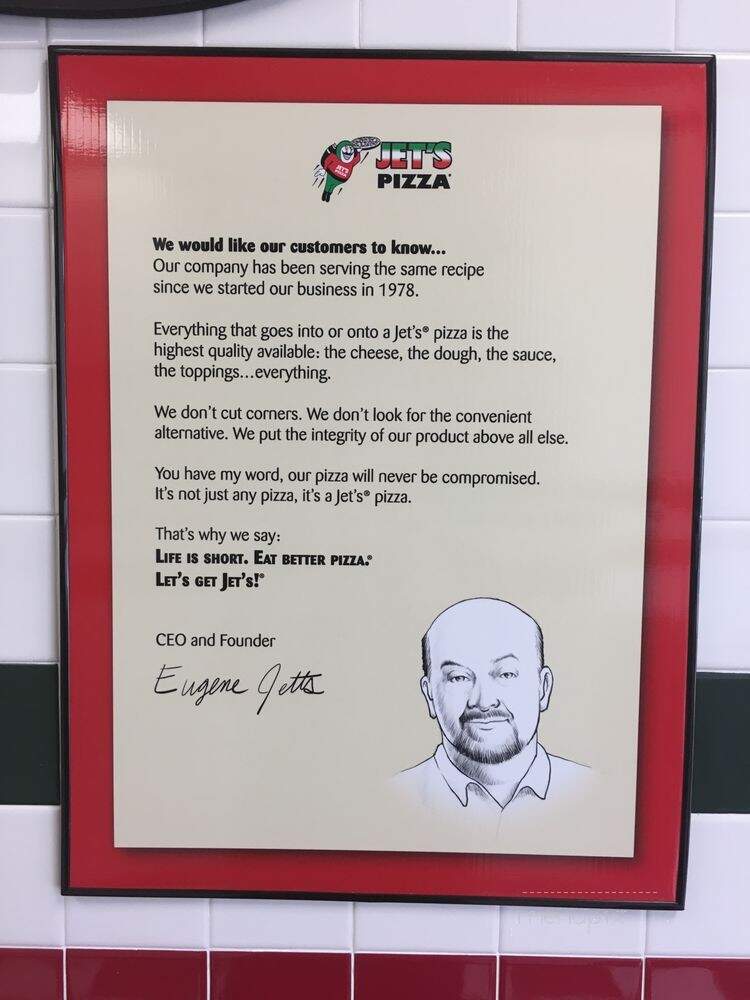 JET'S
PIZZA
We would like our customers to know...
Our company has been serving the same recipe
since we started our business in 1978.
Everything that goes into or onto a Jet's® pizza is the
highest quality available: the cheese, the dough, the sauce,
the toppings...everything.
We don't cut corners. We don't look for the convenient
alternative. We put the integrity of our product above all else.
You have my word, our pizza will never be compromised.
It's not just any pizza, it's a Jet's® pizza.
That's why we say:
LIFE IS SHORT. EAT BETTER PIZZA.®
LET'S GET JET'S!®
CEO and Founder
Eugene Jetts